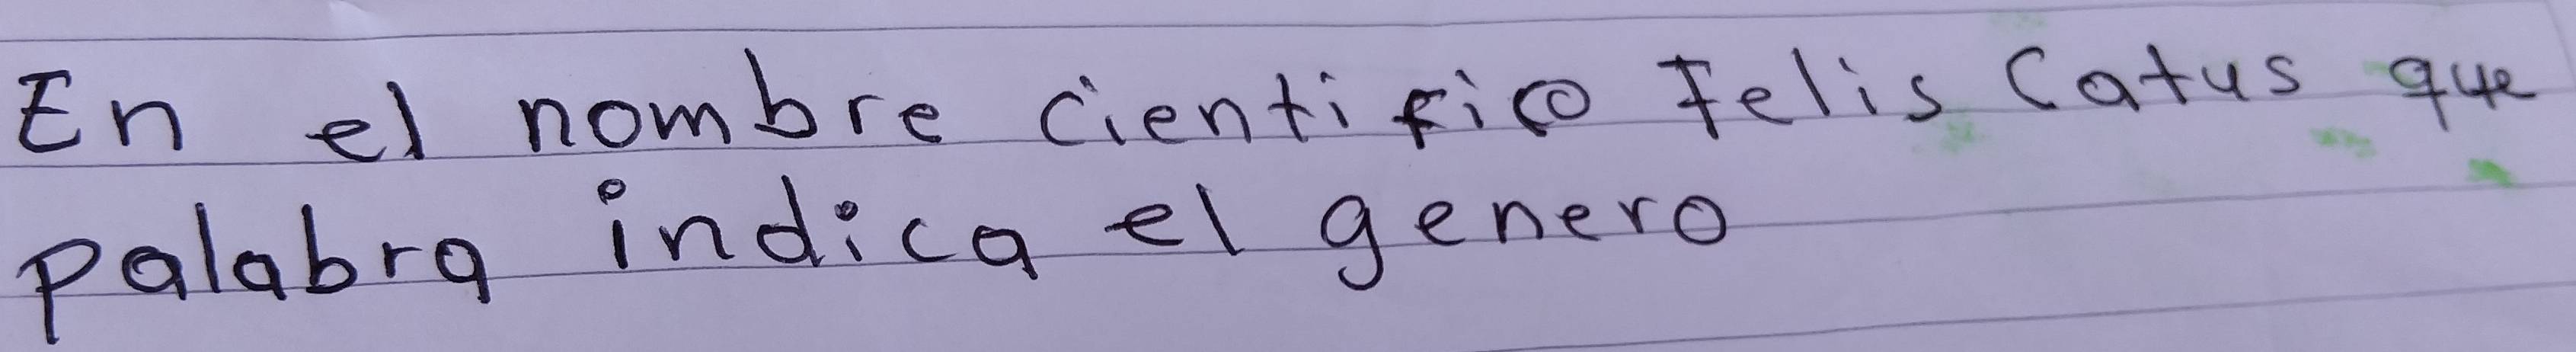 En el nombre cientifico Felis Catus que
palabra indica el genero